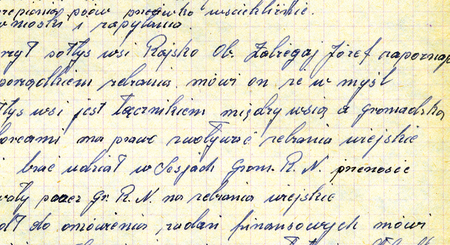 psów przeciwko wściekliźnie.
wnioski i zapytania
sołtys wsi Rajsko Ob. Zabiegaj Józef zapoznaje
porządkiem zebrania mówi on że w myśl
wsi jest łącznikiem między wsią a gromadzką
ma prawo zwoływać zebrania wiejskie
brać udział w Sesjach Grom. R. N. przenosić
przez Gr. R. N. na zebrania wiejskie
do omówienia zadań finansowych mówi